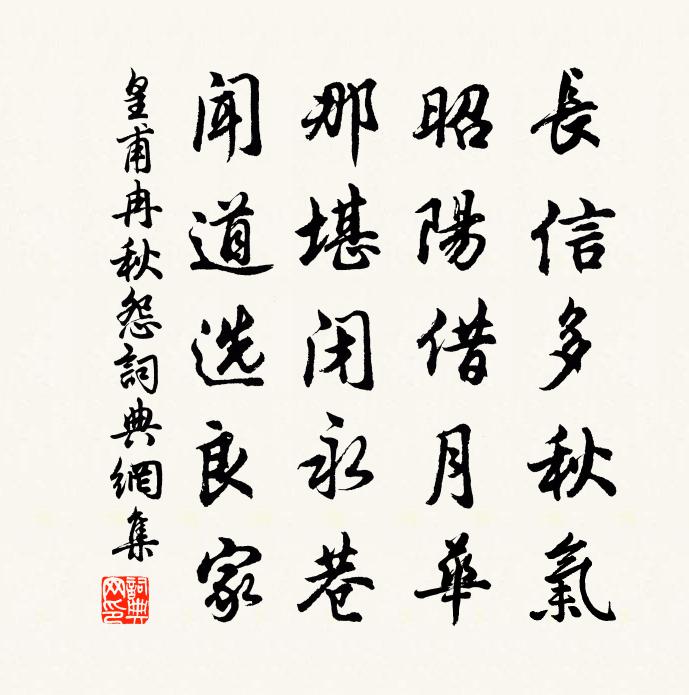 長信多秋氣
昭陽借月華
那堪閉永巷
聞道选良家
皇甫冉秋怨詞典網集
詞典网印